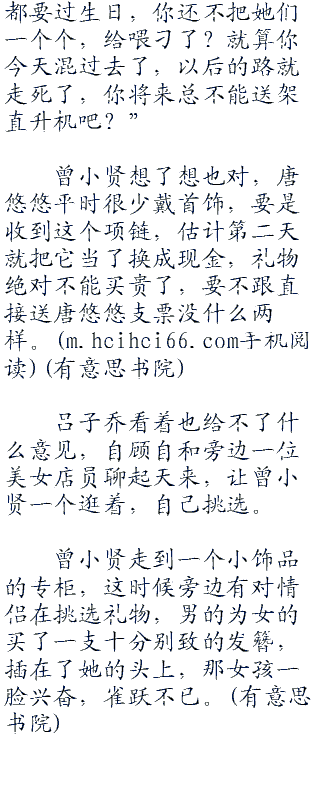 都要过生日，你还不把她们
一个个，给喂刁了？就算你
今天混过去了，以后的路就
走死了，你将来总不能送架
直升机吧？”
曾小贤想了想也对，唐
悠悠平时很少戴首饰，要是
收到这个项链，估计第二天
就把它当了换成现金，礼物
绝对不能买贵了，要不跟直
接送唐悠悠支票没什么两
样。(m.hcihci66.com手机阅
读)(有意思书院)
吕子乔看着也给不了什
么意见，自顾自和旁边一位
美女店员聊起天来，让曾小
贤一个逛着，自己挑选。
曾小贤走到一个小饰品
的专柜，这时候旁边有对情
侣在挑选礼物，男的为女的
买了一支十分别致的发簪，
插在了她的头上，那女孩一
脸兴奋，雀跃不已。(有意思
书院)